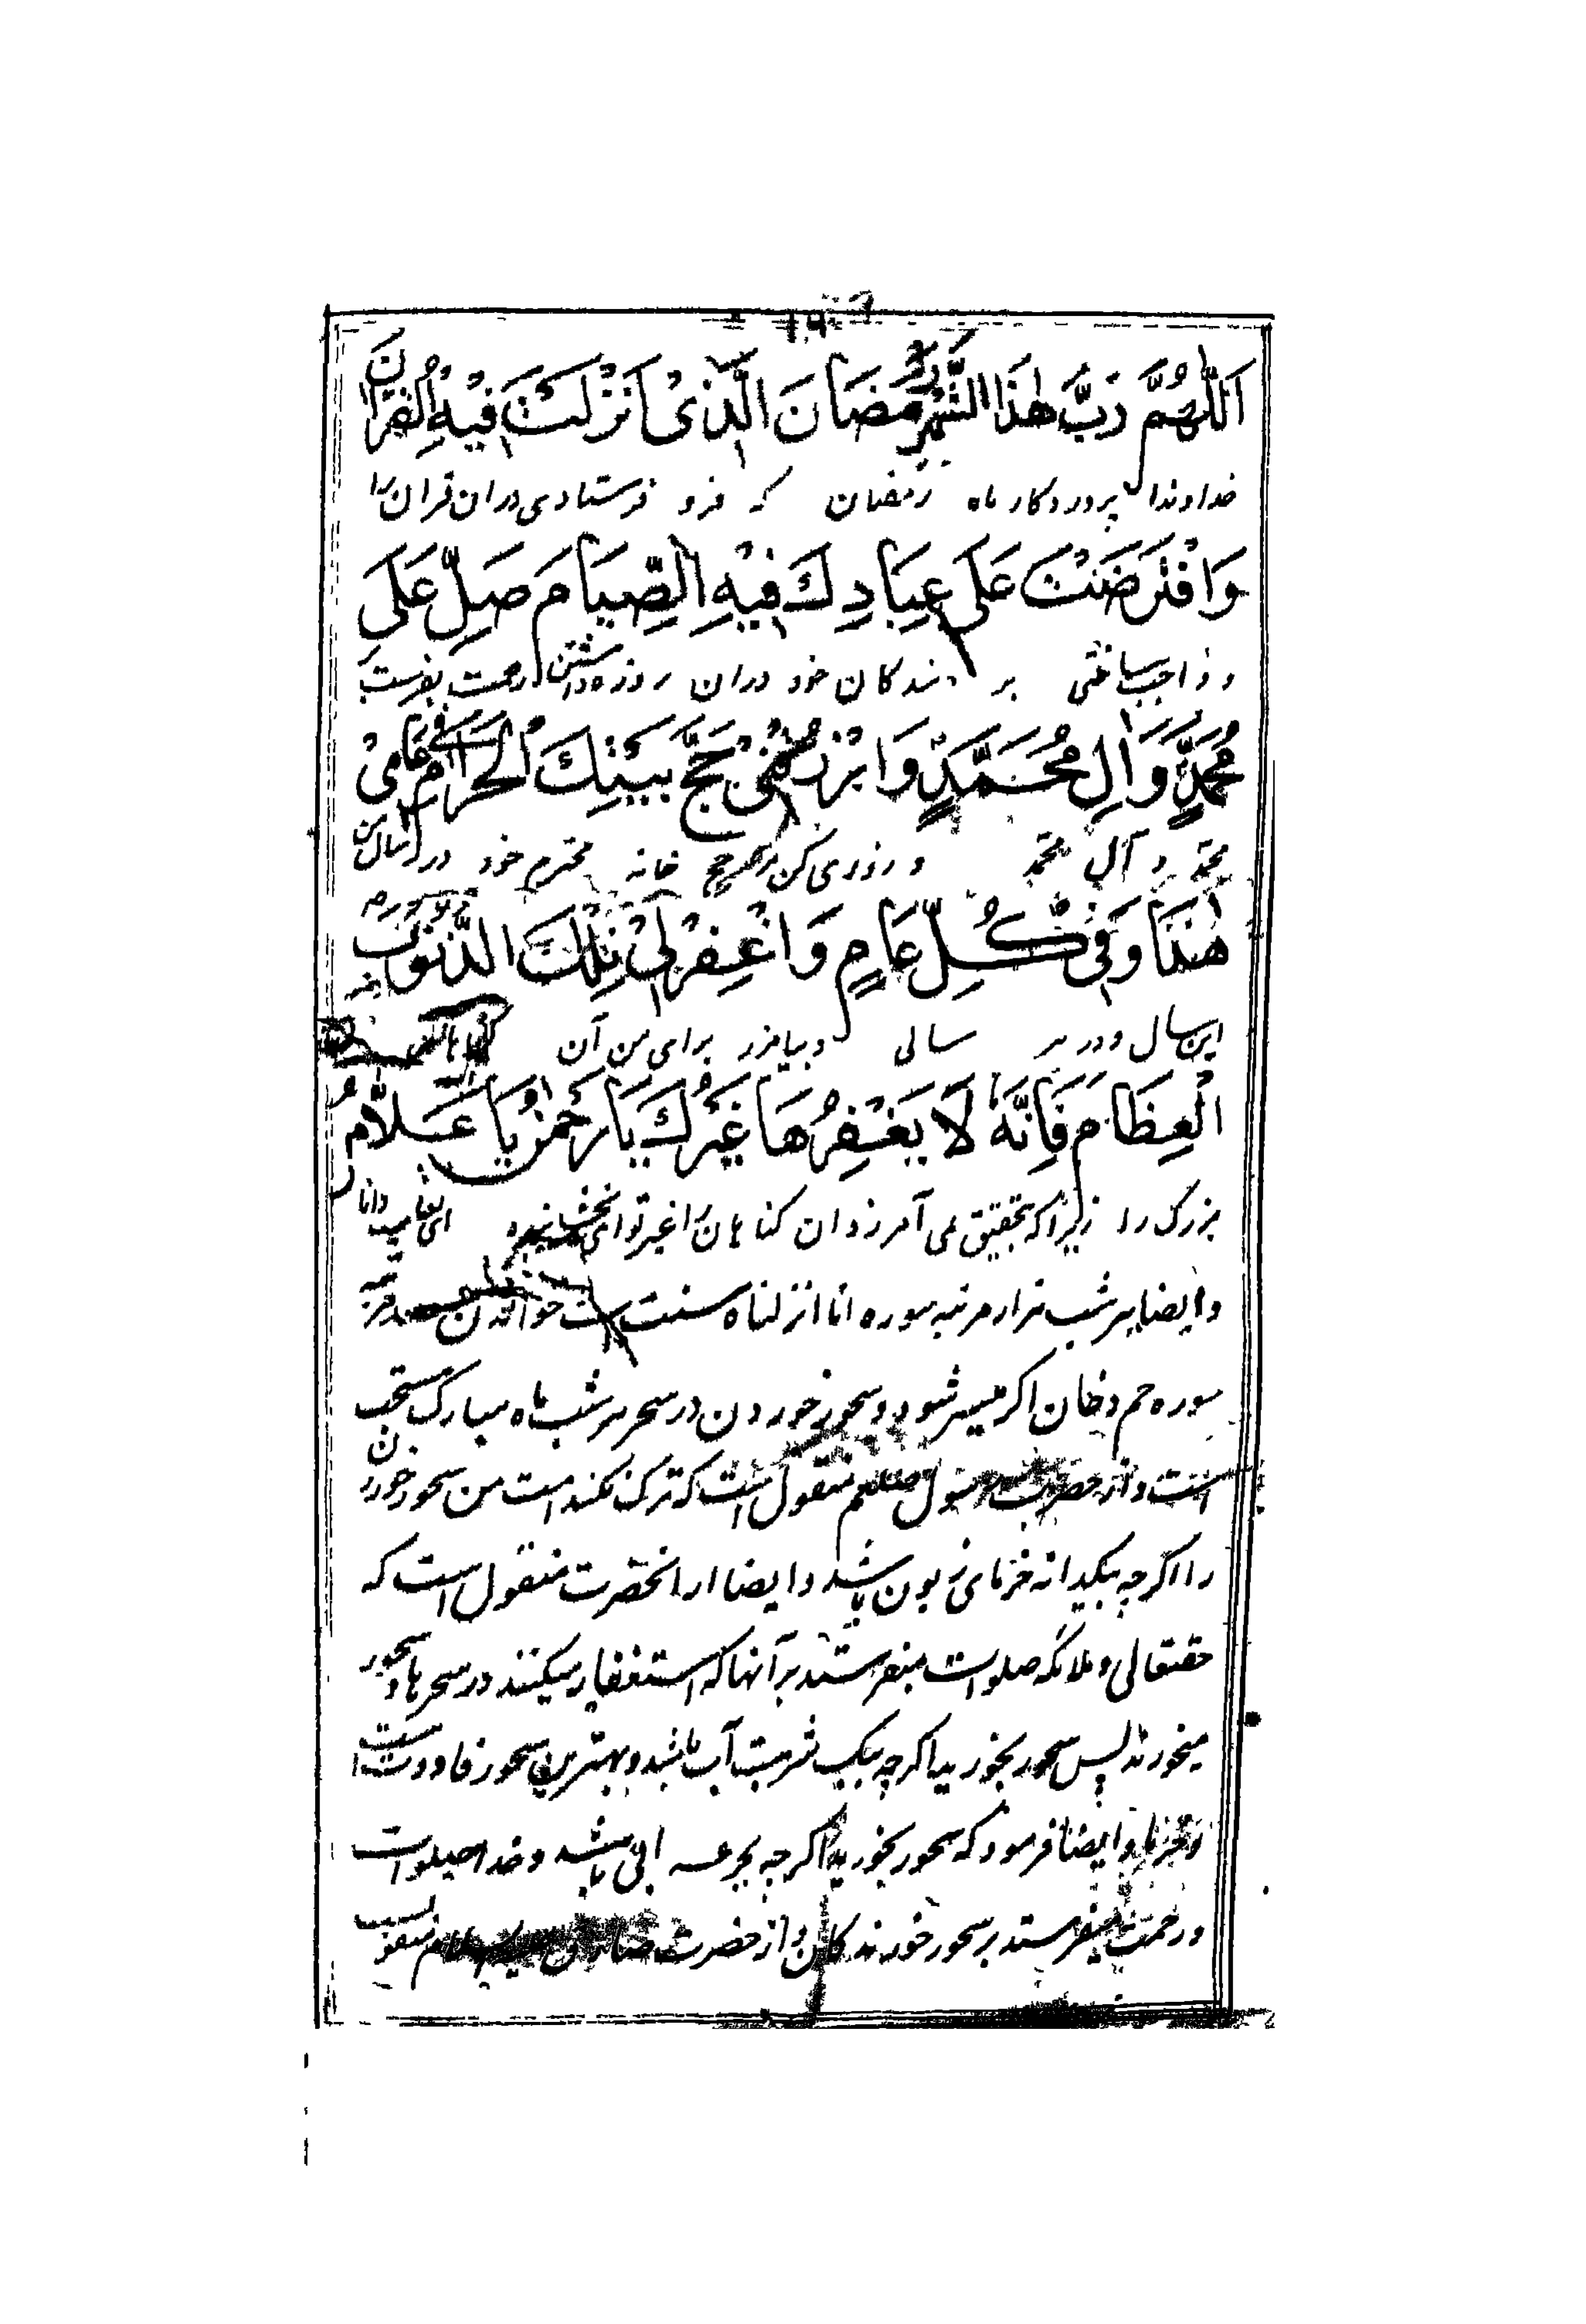 اَللّٰهُمَّ رَبَّ هٰذَا الشَّهْرِ رَمَضَانَ الَّذِیْ اَنْزَلْتَ فِیْهِ الْقُرْاٰنَ
خداوندا پروردکار ماه رمضان که فرو فرستادی دران قران را
وَافْتَرَضْتَ عَلٰی عِبَادِكَ فِیْهِ الصِّیَامَ صَلِّ عَلٰی
و واجب ساختی بر بندکان خود دران روزه داشتن رحمت بفرست بر
مُحَمَّدٍ وَّاٰلِ مُحَمَّدٍ وَارْزُقْنِیْ حَجَّ بَیْتِكَ الْحَرَامِ فِیْ عَامِیْ
محمد و آل محمد و روزی کن مرا حج خانه محترم خود در سال من
هٰذَا وَفِیْ كُلِّ عَامٍ وَاغْفِرْلِیْ تِلْكَ الذُّنُوْبَ
این سال و در هر سالی و بیامرز برای من آن کناهان
الْعِظَامَ فَاِنَّهٗ لَا یَغْفِرُهَا غَیْرُكَ یَا رَحْمٰنُ یَا عَلَّامُ
بزرک را زیراکه بتحقیق نمی آمرزد ان کناهان را غیر تو ای بخشاینده ای دانا
وایضا هر شب هزار مرتبه سوره انا انزلناه سنت است خواندن صد مرتبه
سوره حم دخان اکر میسر شود و سحور خوردن در سحر هر شب ماه مبارک مستحب
است و از حضرت رسول صلعم منقول است که ترک نکند امت من سحور خوردن
را اکرچه بیکدانه خرمای زبون باشد وایضا از انحضرت منقول است که
حقتعالی و ملائکه صلوات میفرستند بر آنها که استغفار میکنند در سحرها و سحور
میخورند پس سحور بخورید اکرچه بیک شربت آب باشد و بهترین سحور قاووت است
و خرما وایضا فرمود که سحور بخورید اکرچه بجرعه ابی باشد و خدا صلوات
و رحمت میفرستد بر سحور خورندکان و از حضرت صادق علیه السلام منقول است